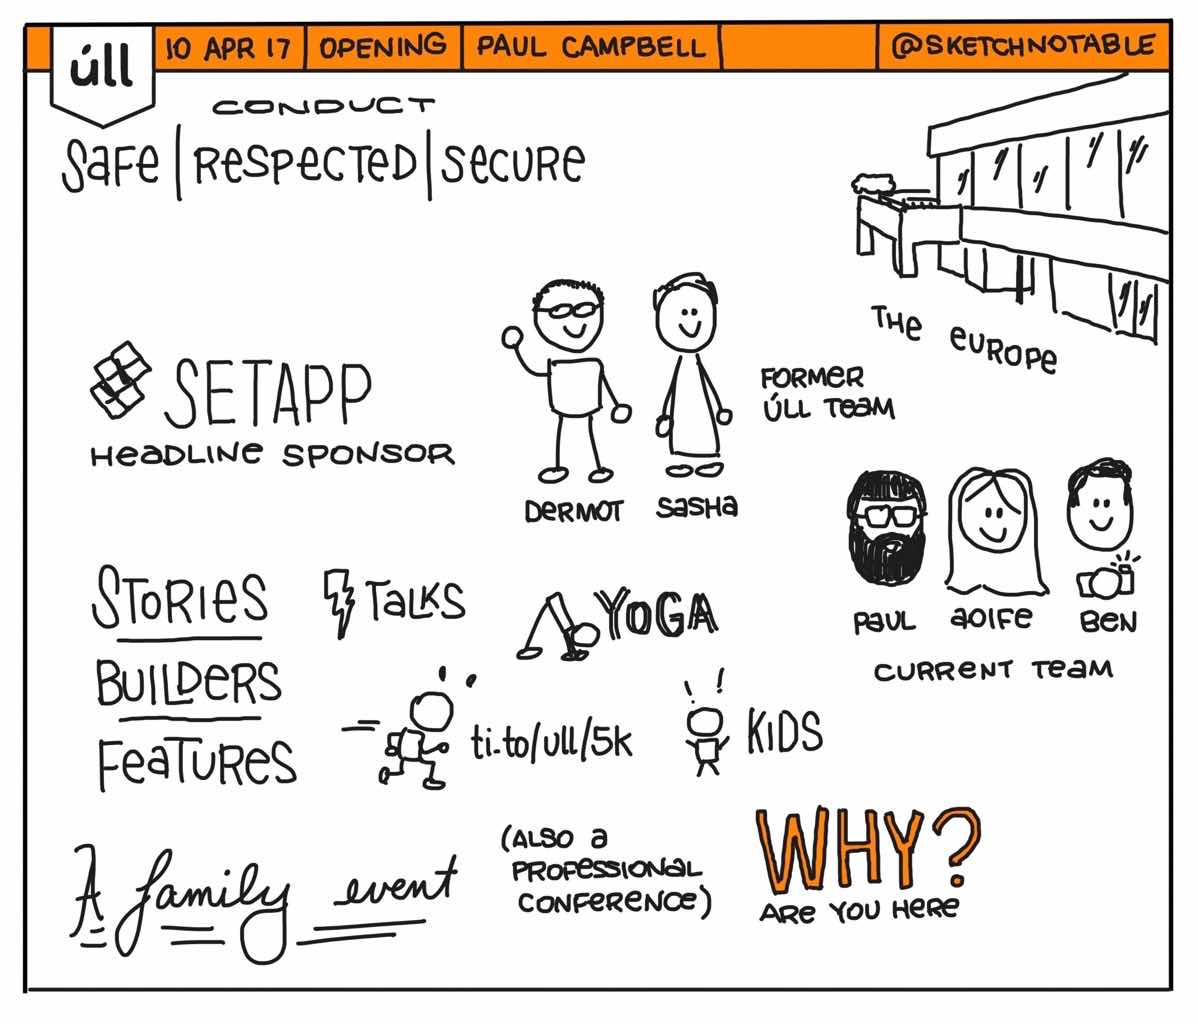 úll
10 APR 17
OPENING
PAUL CAMPBELL
@SKETCHNOTABLE
CONDUCT
SaFe | ReSPeCTeD | SeCURe
THe eUROPe
SETAPP
HeaDLINe SPONSOR
FORMeR
ÚLL TeaM
DeRMOT
SaSHa
PaUL
aOIFe
BeN
CURReNT TeaM
STORIeS
TaLKS
YOGA
BUILDeRS
FeaTUReS
ti.to/ull/5k
KIDS
A family event
(ALSO a
PROFeSSIONaL
CONFeReNCe)
WHY?
aRe YOU HeRe